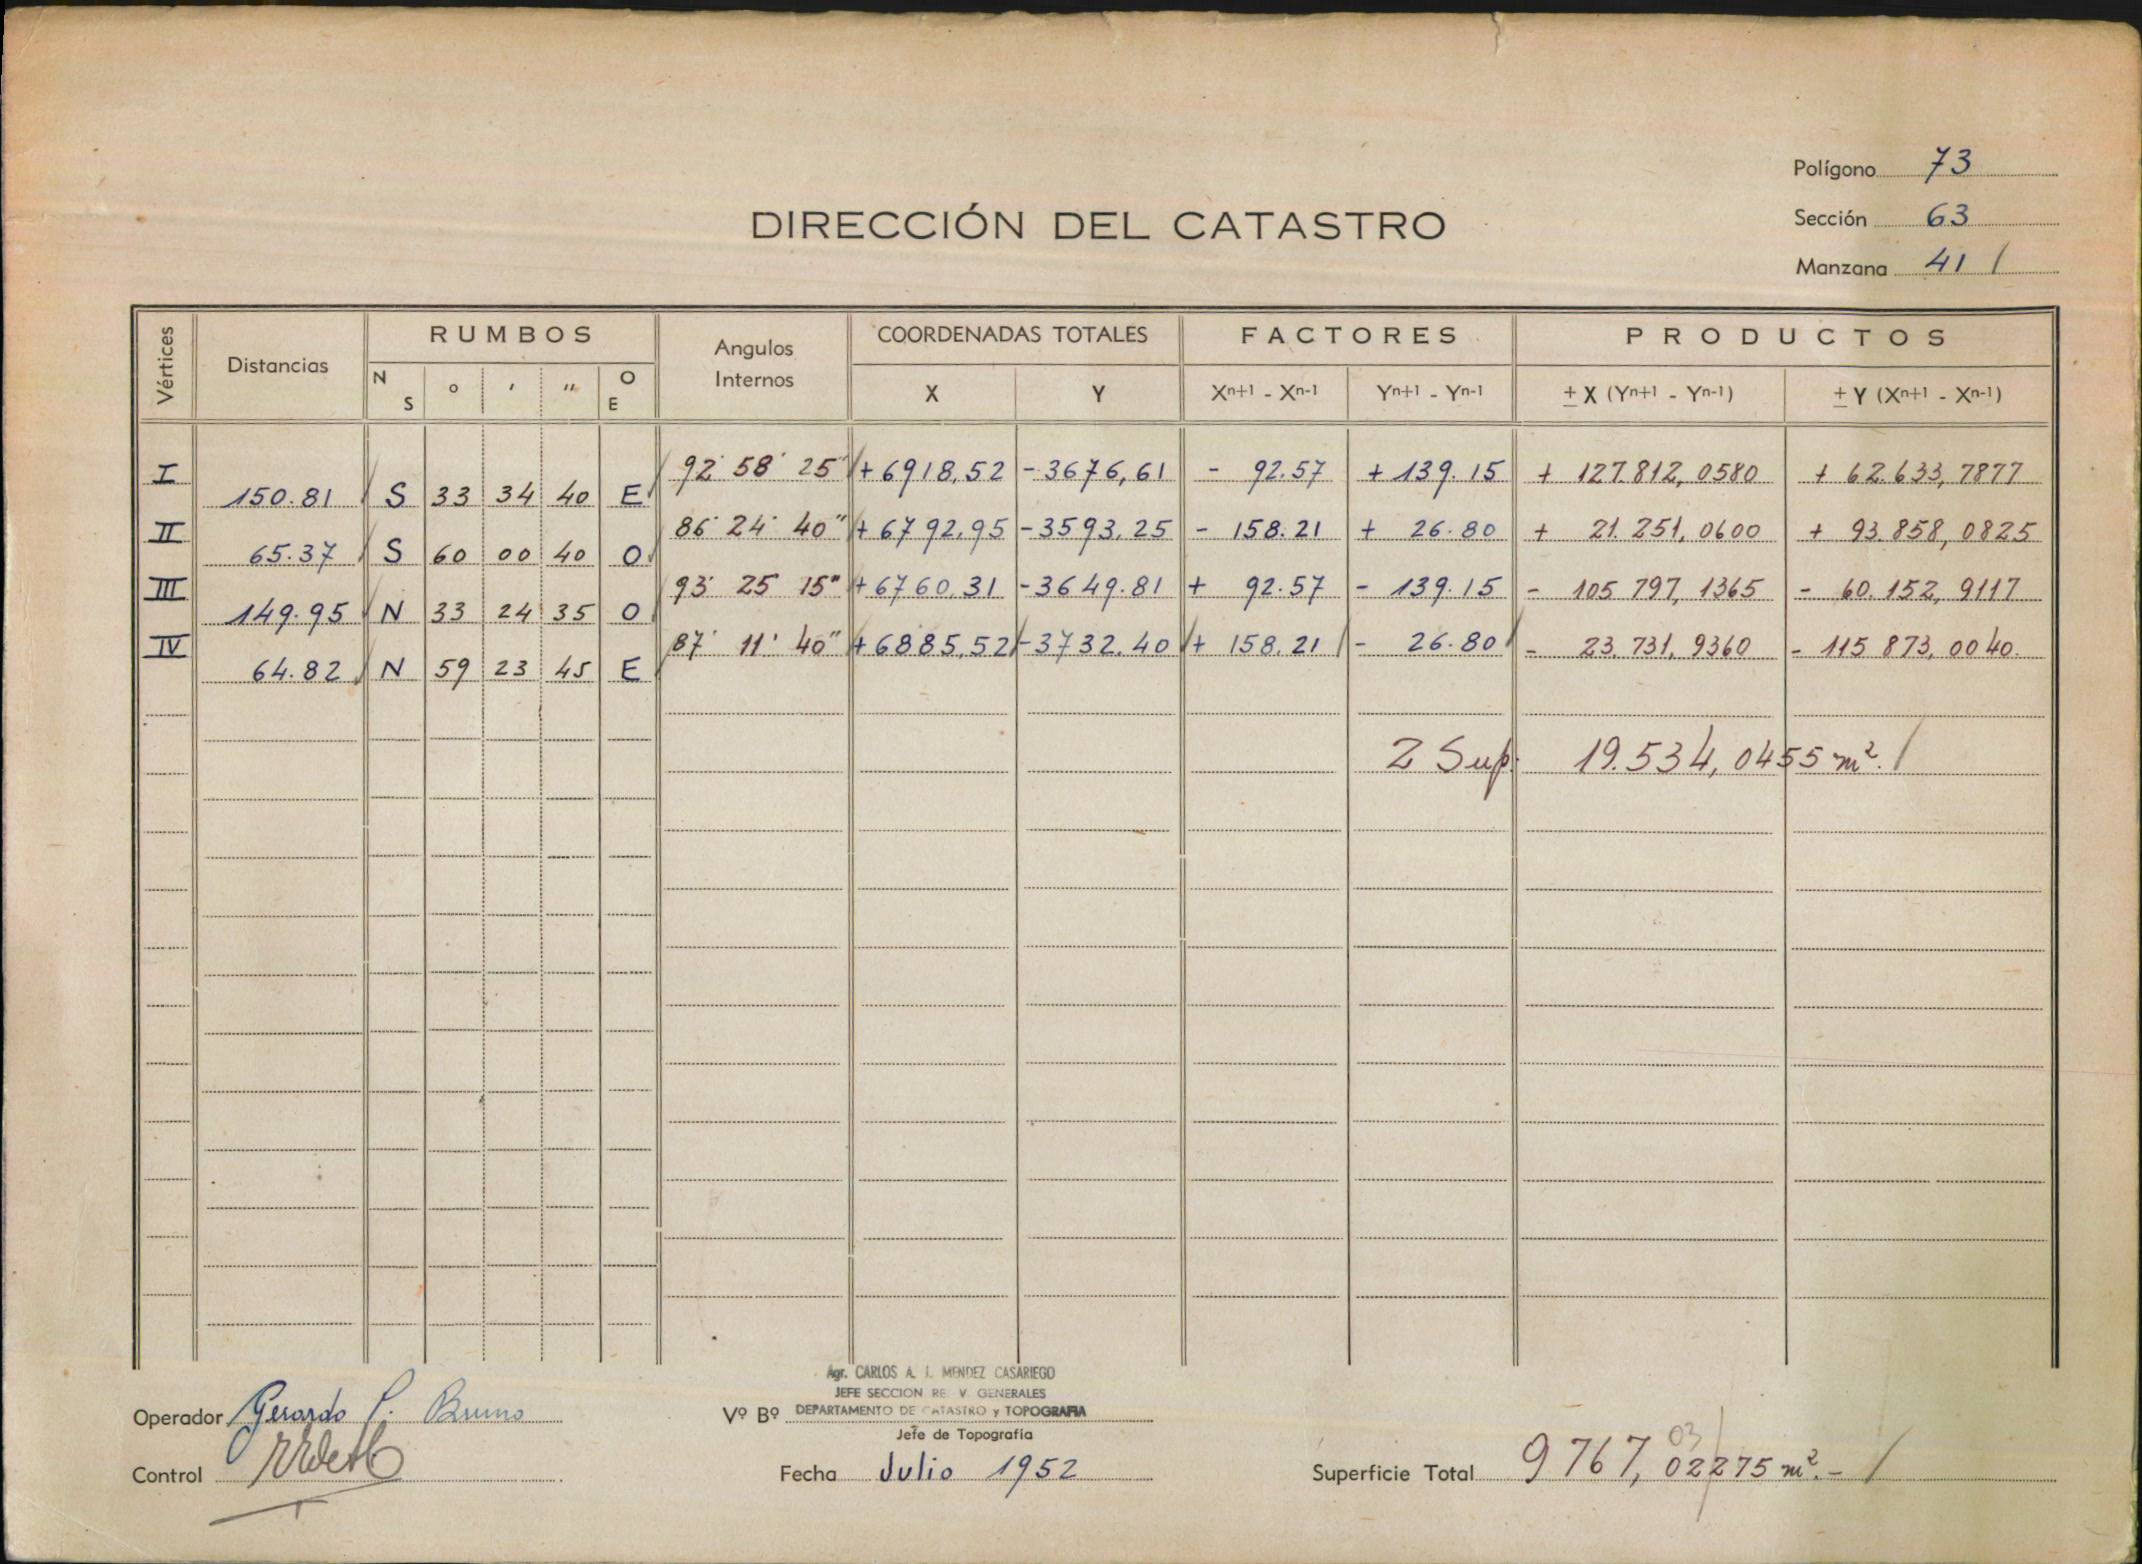 Polígono 73
DIRECCIÓN DEL CATASTRO
Sección 63
Manzana 41 /
Vértices Distancias RUMBOS Angulos Internos COORDENADAS TOTALES FACTORES PRODUCTOS
N S ° ' " O E X Y Xn+1 - Xn-1 Yn+1 - Yn-1 ± X (Yn+1 - Yn-1) ± Y (Xn+1 - Xn-1)
I 92° 58' 25" +6918,52 -3676,61 - 92.57 + 139.15 + 127.812,0580 + 62.633,7877
150.81 S 33 34 40 E
II 86° 24' 40" +6792,95 -3593,25 - 158.21 + 26.80 + 21.251,0600 + 93.858,0825
65.37 S 60 00 40 O
III 93° 25' 15" +6760,31 -3649.81 + 92.57 - 139.15 - 105 797,1365 - 60.152,9117
149.95 N 33 24 35 O
IV 87° 11' 40" +6885,52 -3732.40 + 158.21 - 26.80 - 23.731,9360 - 115 873,0040.
64.82 N 59 23 45 E
2 Sup. 19.534,0455 m². /
Agr. CARLOS A. J. MENDEZ CASARIEGO
JEFE SECCION V. GENERALES
Operador Gerardo P. Bruno
Vº Bº DEPARTAMENTO DE CATASTRO y TOPOGRAFIA
Jefe de Topografía
03
Control
Fecha Julio 1952
Superficie Total 9767,02275 m².- /